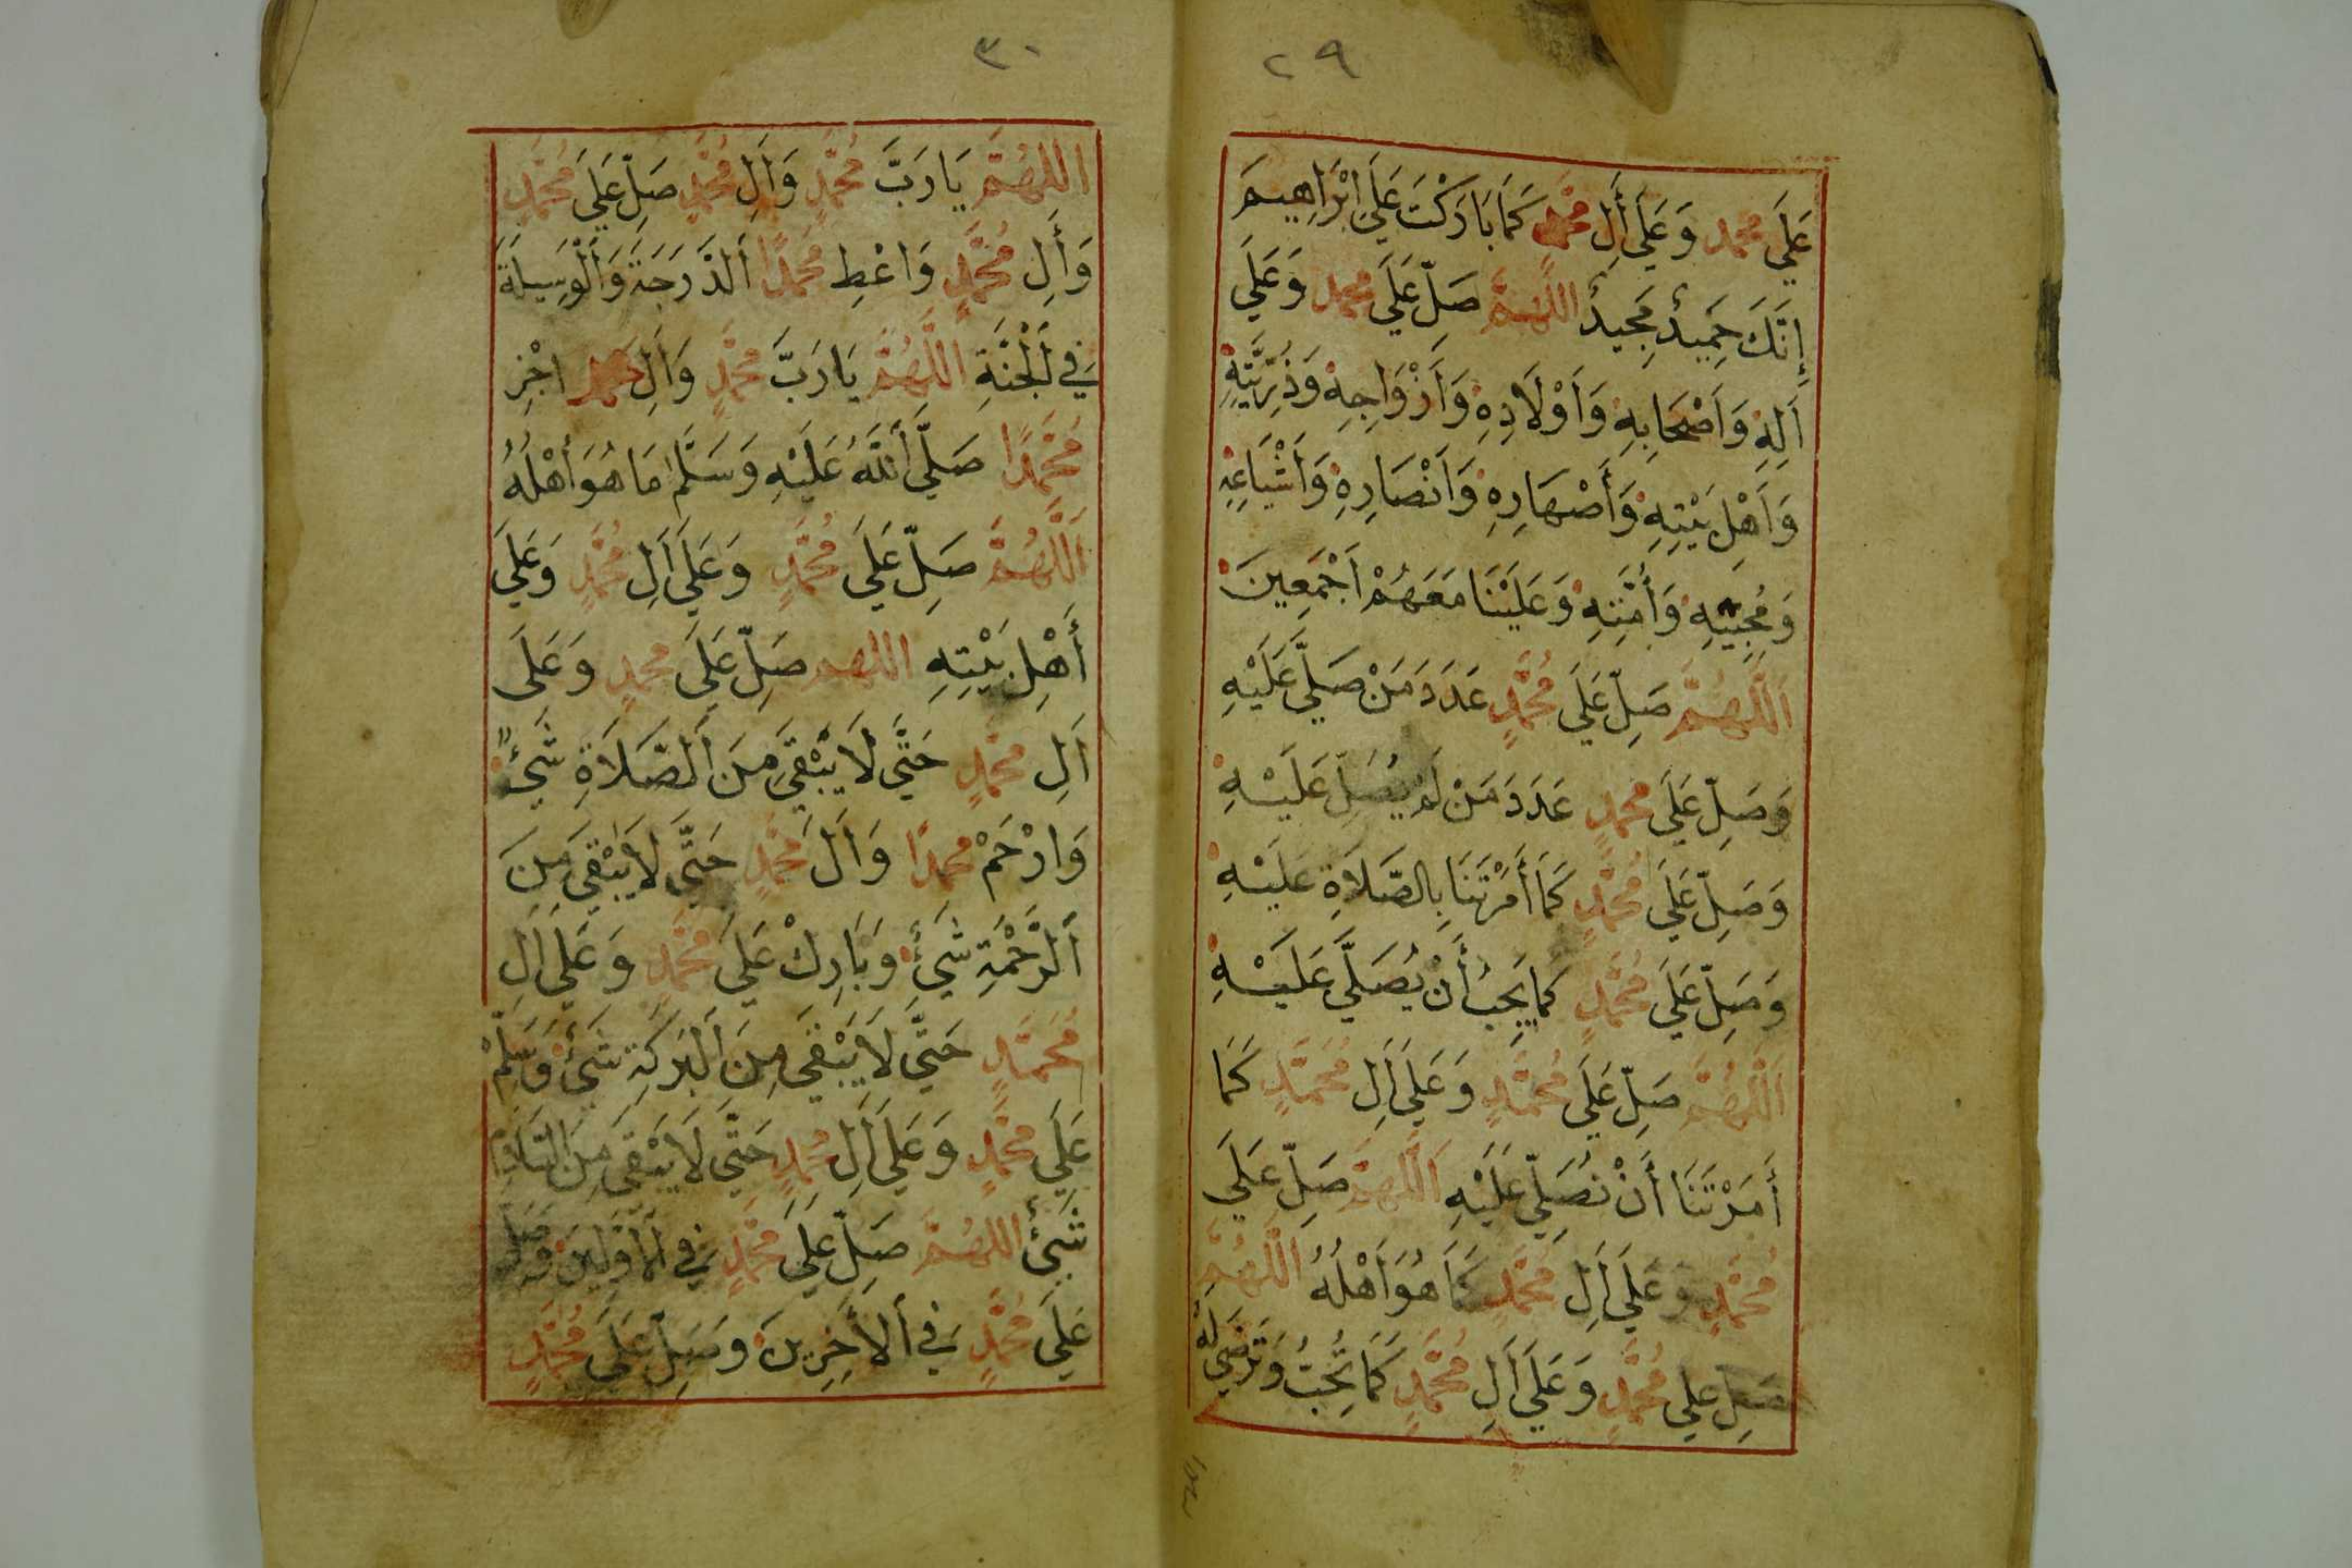 ٢٩
عَلَي محمد وَعَلَي أَلِ محمد كَمَا بَارَكْتَ عَلَي اِبْرَاهِيمَ
إِنَّكَ حَمِيدٌ مَجِيدٌ اللَّهُمَّ صَلِّ عَلَي محمد وَعَلَي
اَلِهِ وَاَصْحَابِهِ وَاَوْلَادِهِ وَاَزْوَاجِهِ وَذُرِّيَّتِهِ
وَاَهْلِ بَيْتِهِ وَأَصْهَارِهِ وَاَنْصَارِهِ وَاَشْيَاعِهِ
وَمُحِبِّيهِ وَاُمَّتِهِ وَعَلَيْنَا مَعَهُمْ اَجْمَعِينَ
اَللَّهُمَّ صَلِّ عَلَي مُحَمَّدٍ عَدَدَ مَنْ صَلَّي عَلَيْهِ
وَصَلِّ عَلَي محمدٍ عَدَدَ مَنْ لَمْ يُصَلِّ عَلَيْهِ
وَصَلِّ عَلَي مُحَمَّدٍ كَمَا أَمَرْتَنَا بِالصَّلَاةِ عَلَيْهِ
وَصَلِّ عَلَي مُحَمَّدٍ كَمَا يَجِبُ أَنْ يُصَلَّي عَلَيْهِ
اَللَّهُمَّ صَلِّ عَلَي مُحَمَّدٍ وَعَلَي اَلِ مُحَمَّدٍ كَمَا
أَمَرْتَنَا أَنْ نُصَلِّيَ عَلَيْهِ اَللَّهُمَّ صَلِّ عَلَي
مُحَمَّدٍ وَعَلَي اَلِ مُحَمَّدٍ كَمَا هُوَ اَهْلُهُ اَللَّهُمَّ
صَلِّ عَلَي مُحَمَّدٍ وَعَلَي اَلِ مُحَمَّدٍ كَمَا تُحِبُّ وَتَرْضَي لَهُ
٣٠
اللهُمَّ يَا رَبَّ مُحَمَّدٍ وَاَلِ مُحَمَّدٍ صَلِّ عَلَي مُحَمَّدٍ
وَأَلِ مُحَمَّدٍ وَاعْطِ مُحَمَّدًا اَلدَّرَجَةَ وَالْوَسِيلَةَ
فِي اَلْجَنَّةِ اَللَّهُمَّ يَا رَبَّ مُحَمَّدٍ وَاَلِ محمد اجْزِ
مُحَمَّدًا صَلَّي اَللَّهُ عَلَيْهِ وَسَلَّمَ مَا هُوَ أَهْلُهُ
اَللَّهُمَّ صَلِّ عَلَي مُحَمَّدٍ وَعَلَي اَلِ مُحَمَّدٍ وَعَلَي
أَهْلِ بَيْتِهِ اللهم صَلِّ عَلَي محمدٍ وَعَلَى
اَلِ محمَّدٍ حَتَّي لَا يَبْقَي مِنَ اَلصَّلَاةِ شَيْءٌ
وَارْحَمْ محمدًا وَاَلَ مُحَمَّدٍ حَتَّي لَا يَبْقَي مِنَ
اَلرَّحْمَةِ شَيْءٌ وَبَارِكْ عَلَي مُحَمَّدٍ وَعَلَي اَلِ
مُحَمَّدٍ حَتَّي لَا يَبْقَي مِنَ اَلْبَرَكَةِ شَيْءٌ وَسَلِّمْ
عَلَي مُحَمَّدٍ وَعَلَي اَلِ مُحمدٍ حَتَّي لَا يَبْقَي مِنَ السَّلَامِ
شَيْءٌ اللهُمَّ صَلِّ عَلَي مُحَمَّدٍ فِي اَلْاَوَّلِينَ وَصَلِّ
عَلَي مُحَمَّدٍ فِي اَلْأَخِرِينَ وَصَلِّ عَلَي مُحَمَّدٍ